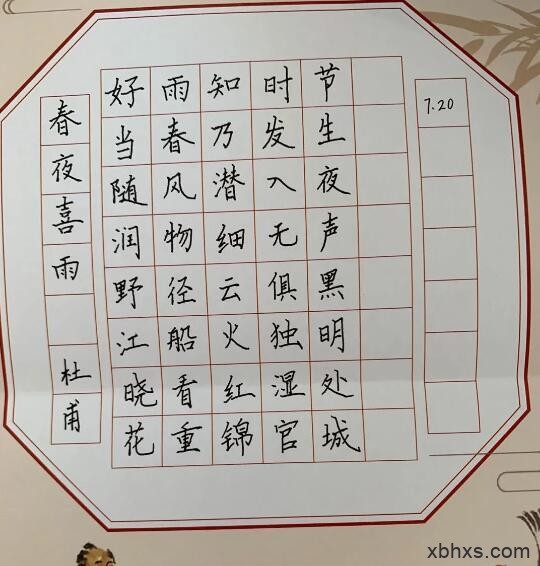 春夜喜雨 杜甫
好雨知时节
当春乃发生
随风潜入夜
润物细无声
野径云俱黑
江船火独明
晓看红湿处
花重锦官城
7.20
xbhxs.com